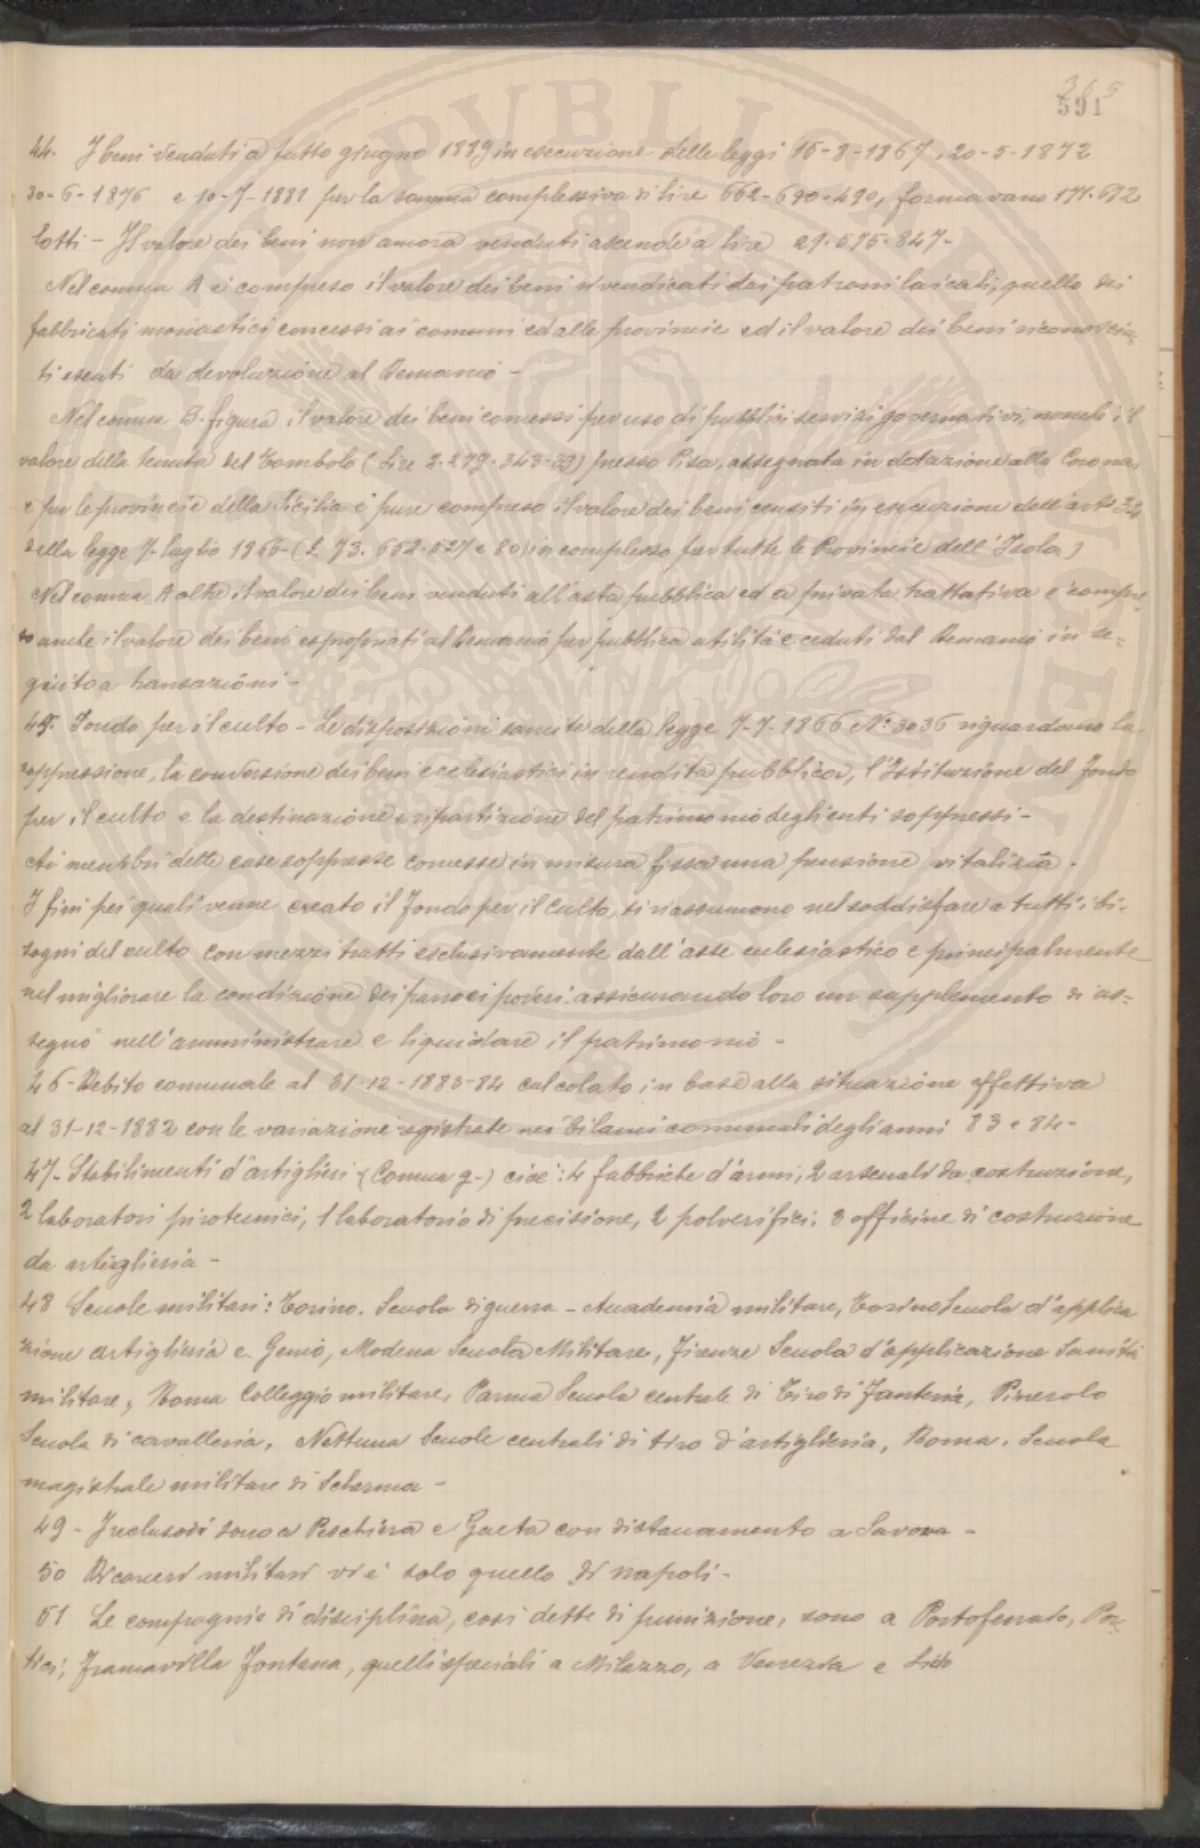 365
591
44. I beni venduti a tutto giugno 1889 in esecuzione delle leggi 15-8-1867, 20-5-1872
30-6-1876 e 10-7-1881 per la somma complessiva di lire 662-690-490, formavano 171.692
lotti - Il valore dei beni non ancora venduti ascende a lire 29.595.847-
Nel comma A è compreso il valore dei beni rivendicati dai patroni laicali, quello dei
fabbricati monastici concessi ai comuni ed alle provincie ed il valore dei beni riconosciu=
ti esenti da devoluzione al Demanio -
Nel comma B. figura il valore dei beni concessi per uso di pubblici servizi governativi, nonche il
valore della tenuta del Tombolo (Lire 2.279.343.39) presso Pisa, assegnata in dotazione alla Corona,
e per le provincie della Sicilia è pure compreso il valore dei beni censiti in esecuzione dell'arto 34
della legge 7-luglio 1866-(L 73.652.527 e 80) in complesso per tutte le Provincie dell'Isola)
Nel comma A oltre il valore dei beni venduti all'asta pubblica ed a privata trattativa è compre=
so anche il valore dei beni espropriati al Demanio per pubblica utilità e ceduti dal Demanio in se=
guito a transazioni -
45. Fondo per il culto - Le disposizioni sancite della legge 7-7-1866 No 3036 riguardano la
soppressione, la conversione dei beni ecclesiastici in rendita pubblica, l'Istituzione del Fondo
per il culto e la destinazione e ripartizione del patrimonio degli enti soppressi -
Ai membri delle case soppresse concesse in misura fissa una pensione vitalizia -
I fini pei quali venne creato il Fondo per il Culto, si riassumono nel soddisfare a tutti i bi=
sogni del culto con mezzi tratti esclusivamente dall'asse eclesiastico e principalmente
nel migliorare la condizione dei parroci poveri assicurando loro un supplemento di as=
segno nell'amministrare e liquidare il patrimonio -
46 - Debito comunale al 31-12-1883-84 calcolato in base alla situazione effettiva
al 31-12-1882 con le variazione registrate nei bilanci comunali degli anni 83 e 84-
47- Stabilimenti d'artiglieri (Comma g-) cioè: 4 fabbriche d'armi, 2 arsenali da costruzione,
2 laboratori pirotecnici, 1 laboratorio di precisione, 2 polverifici, 3 officine di costruzione
da artiglieria -
48 Scuole militari: Torino. Scuola di guerra - Accademia militare, Torino Scuola d'applica
zione artiglieria e Genio, Modena Scuola Militare, Firenze Scuola d'applicazione Sanità
militare, Roma Colleggio militare, Parma Scuola centrale di Tiro di Fanteria, Pinerolo
Scuola di cavalleria, Nettuna Scuole centrali di tiro d'artiglieria, Roma. Scuola
magistrale militare di Scherma -
49 - I reclusori sono a Peschiera e Gaeta con distaccamento a Savona -
50 Di carceri militari vi è solo quello di napoli -
51 Le compagnie di disciplina, così dette di punizione, sono a Portoferraio, Por=
tici, Francavilla Fontana, quelli speciali a Milazzo, a Venezia e Lido